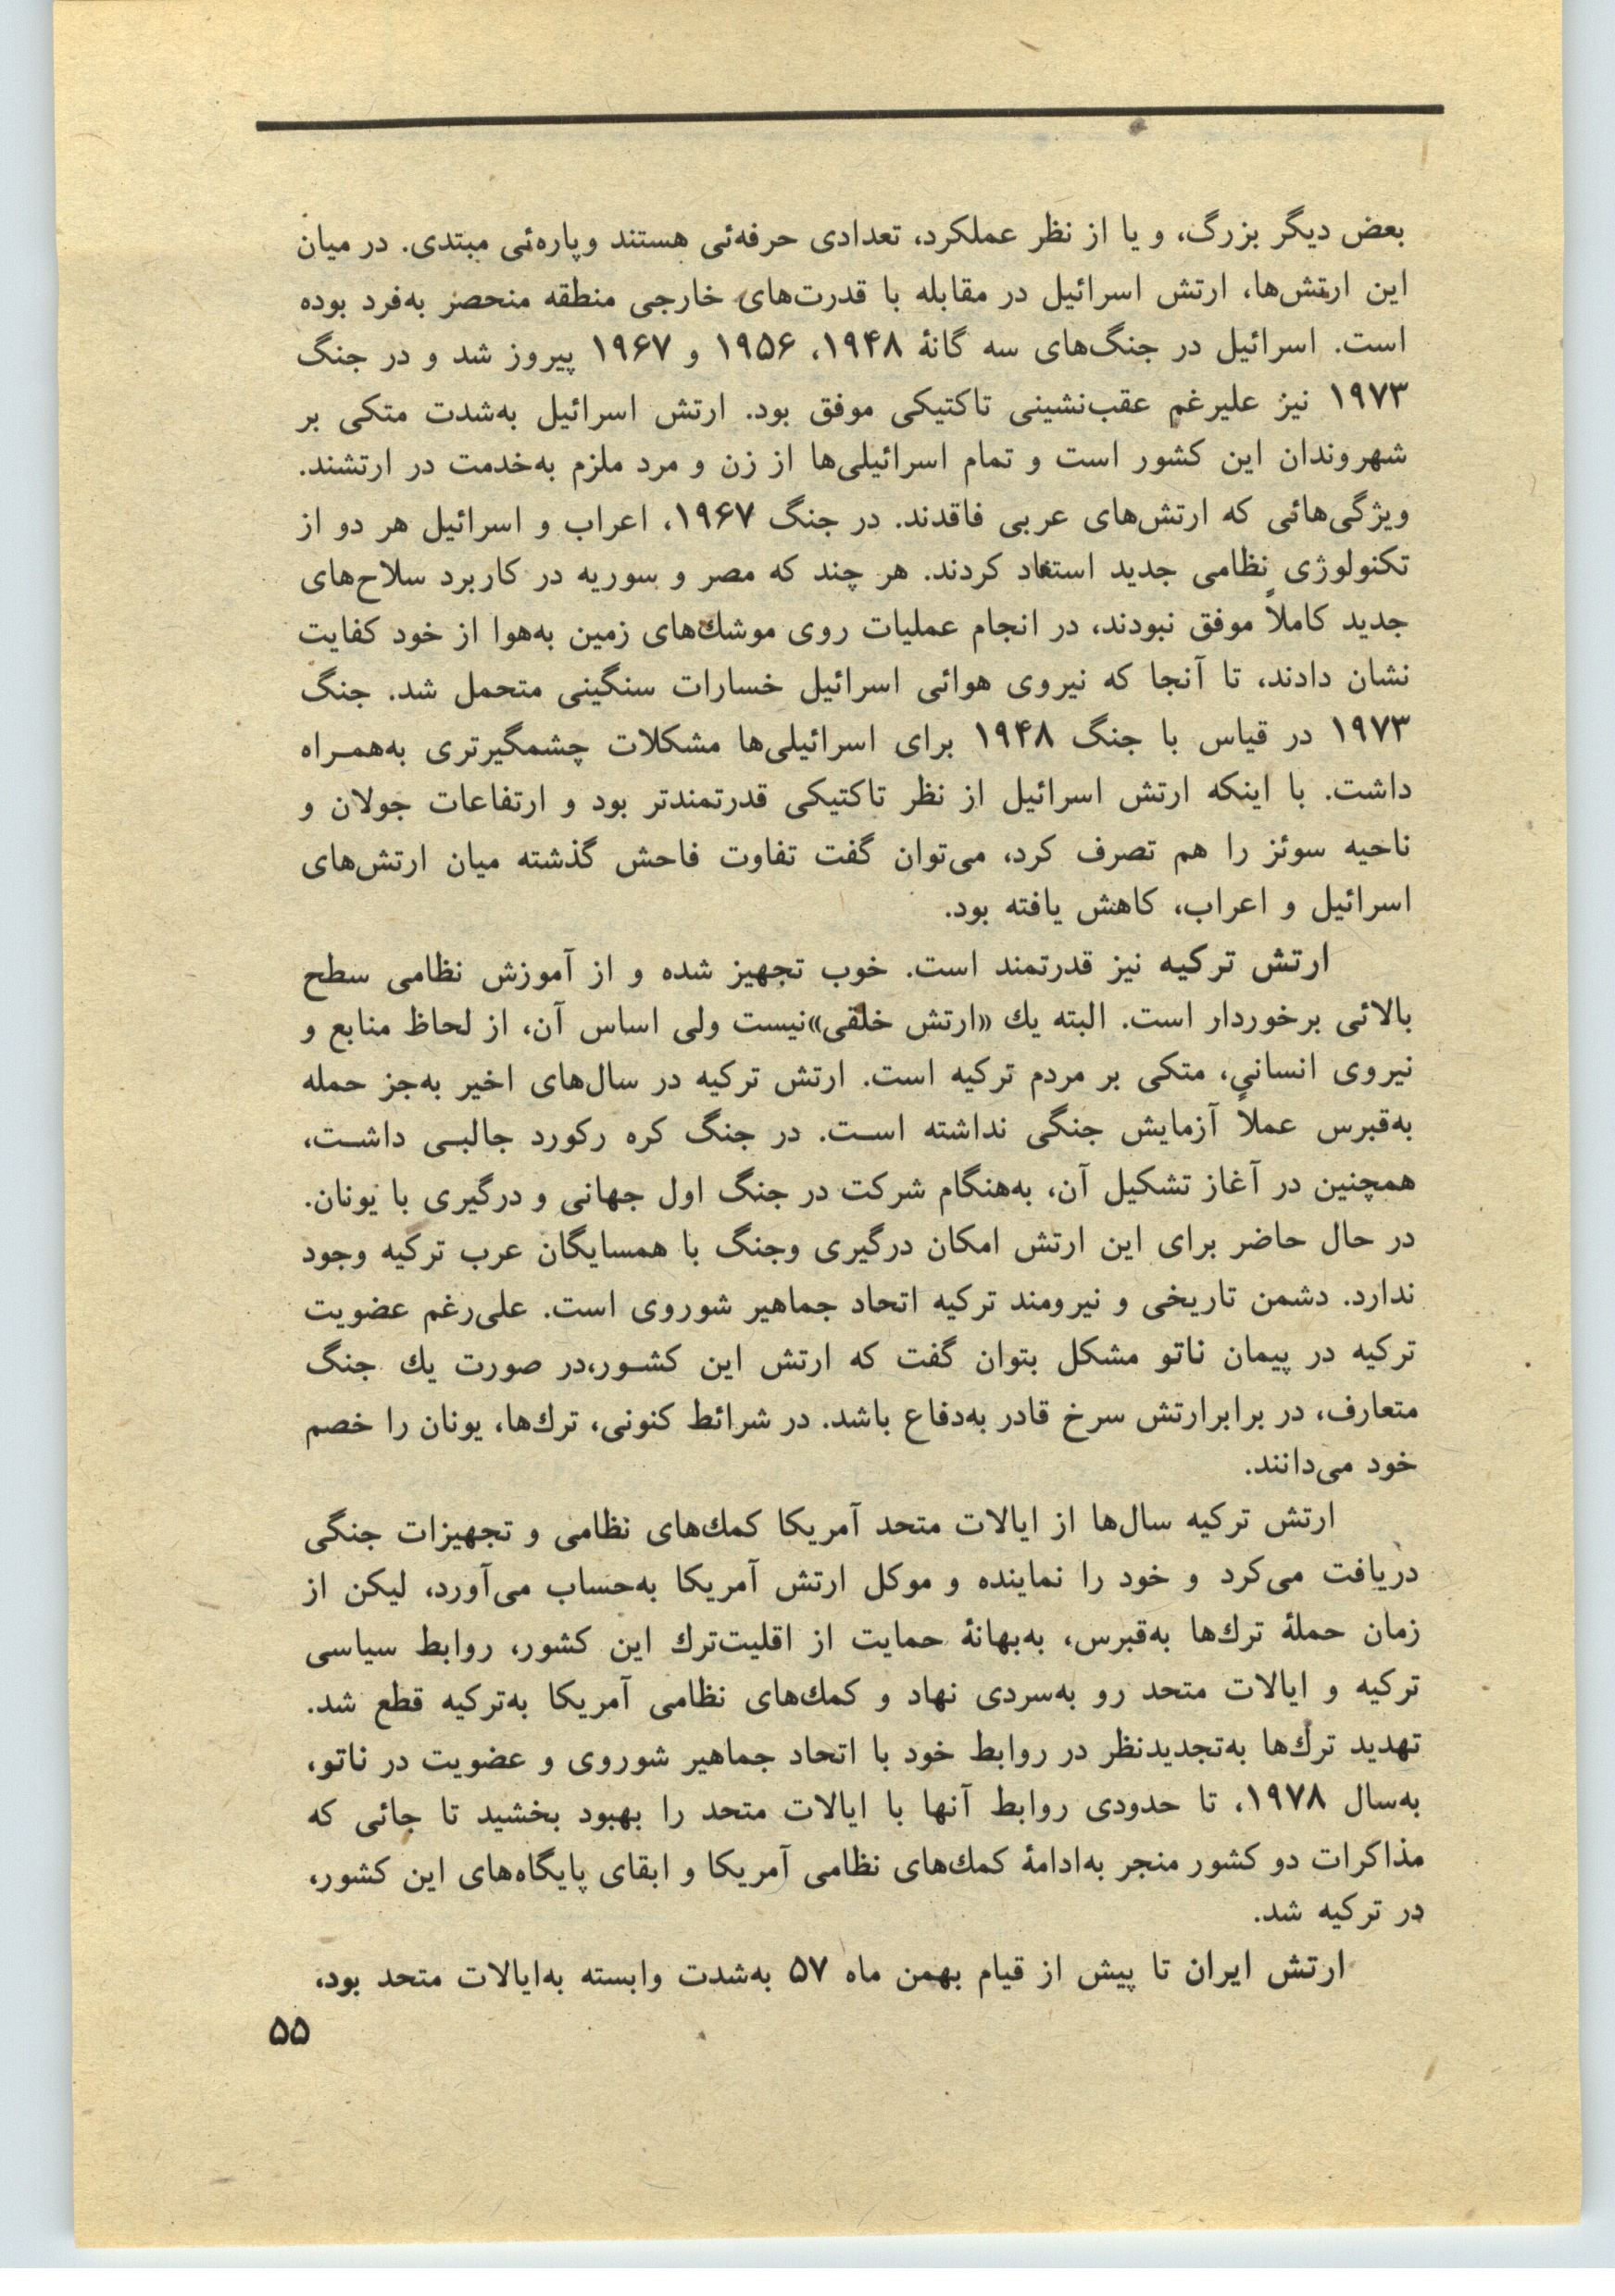 بعض دیگر بزرگ، و یا از نظر عملکرد، تعدادی حرفه‌ئی هستند وپاره‌ئی مبتدی. در میان
این ارتش‌ها، ارتش اسرائیل در مقابله با قدرت‌های خارجی منطقه منحصر به‌فرد بوده
است. اسرائیل در جنگ‌های سه گانهٔ ۱۹۴۸، ۱۹۵۶ و ۱۹۶۷ پیروز شد و در جنگ
۱۹۷۳ نیز علیرغم عقب‌نشینی تاکتیکی موفق بود. ارتش اسرائیل به‌شدت متکی بر
شهروندان این کشور است و تمام اسرائیلی‌ها از زن و مرد ملزم به‌خدمت در ارتشند.
ویژگی‌هائی که ارتش‌های عربی فاقدند. در جنگ ۱۹۶۷، اعراب و اسرائیل هر دو از
تکنولوژی نظامی جدید استفاد کردند. هر چند که مصر و سوریه در کاربرد سلاح‌های
جدید کاملاً موفق نبودند، در انجام عملیات روی موشك‌های زمین به‌هوا از خود کفایت
نشان دادند، تا آنجا که نیروی هوائی اسرائیل خسارات سنگینی متحمل شد. جنگ
۱۹۷۳ در قیاس با جنگ ۱۹۴۸ برای اسرائیلی‌ها مشکلات چشمگیرتری به‌همـراه
داشت. با اینکه ارتش اسرائیل از نظر تاکتیکی قدرتمندتر بود و ارتفاعات جولان و
ناحیه سوئز را هم تصرف کرد، می‌توان گفت تفاوت فاحش گذشته میان ارتش‌های
اسرائیل و اعراب، کاهش یافته بود.
ارتش ترکیه نیز قدرتمند است. خوب تجهیز شده و از آموزش نظامی سطح
بالائی برخوردار است. البته یك «ارتش خلقی»نیست ولی اساس آن، از لحاظ منابع و
نیروی انسانی، متکی بر مردم ترکیه است. ارتش ترکیه در سال‌های اخیر به‌جز حمله
به‌قبرس عملاً آزمایش جنگی نداشته اسـت. در جنگ کره رکورد جالبـی داشـت،
همچنین در آغاز تشکیل آن، به‌هنگام شرکت در جنگ اول جهانی و درگیری با یونان.
در حال حاضر برای این ارتش امکان درگیری وجنگ با همسایگان عرب ترکیه وجود
ندارد. دشمن تاریخی و نیرومند ترکیه اتحاد جماهیر شوروی است. علی‌رغم عضویت
ترکیه در پیمان ناتو مشکل بتوان گفت که ارتش این کشـور،در صورت یك جنگ
متعارف، در برابرارتش سرخ قادر به‌دفاع باشد. در شرائط کنونی، ترك‌ها، یونان را خصم
خود می‌دانند.
ارتش ترکیه سال‌ها از ایالات متحد آمریکا کمك‌های نظامی و تجهیزات جنگی
دریافت می‌کرد و خود را نماینده و موکل ارتش آمریکا به‌حساب می‌آورد، لیکن از
زمان حملهٔ ترك‌ها به‌قبرس، به‌بهانهٔ حمایت از اقلیت‌ترك این کشور، روابط سیاسی
ترکیه و ایالات متحد رو به‌سردی نهاد و کمك‌های نظامی آمریکا به‌ترکیه قطع شد.
تهدید ترك‌ها به‌تجدیدنظر در روابط خود با اتحاد جماهیر شوروی و عضویت در ناتو،
به‌سال ۱۹۷۸، تا حدودی روابط آنها با ایالات متحد را بهبود بخشید تا جائی که
مذاکرات دو کشور منجر به‌ادامهٔ کمك‌های نظامی آمریکا و ابقای پایگاه‌های این کشور،
در ترکیه شد.
ارتش ایران تا پیش از قیام بهمن ماه ۵۷ به‌شدت وابسته به‌ایالات متحد بود،
۵۵